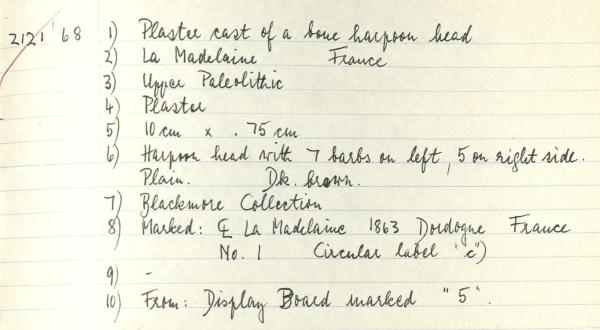 2121'68 1) Plaster cast of a bone harpoon head
2) La Madelaine France
3) Upper Paleolithic
4) Plaster
5) 10 cm x .75 cm
6) Harpoon head with 7 barbs on left, 5 on right side.
Plain. Dk. brown.
7) Blackmore Collection
8) Marked: ℄ La Madelaine 1863 Dordogne France
No. 1 Circular label "c")
9) -
10) From: Display Board marked "5".